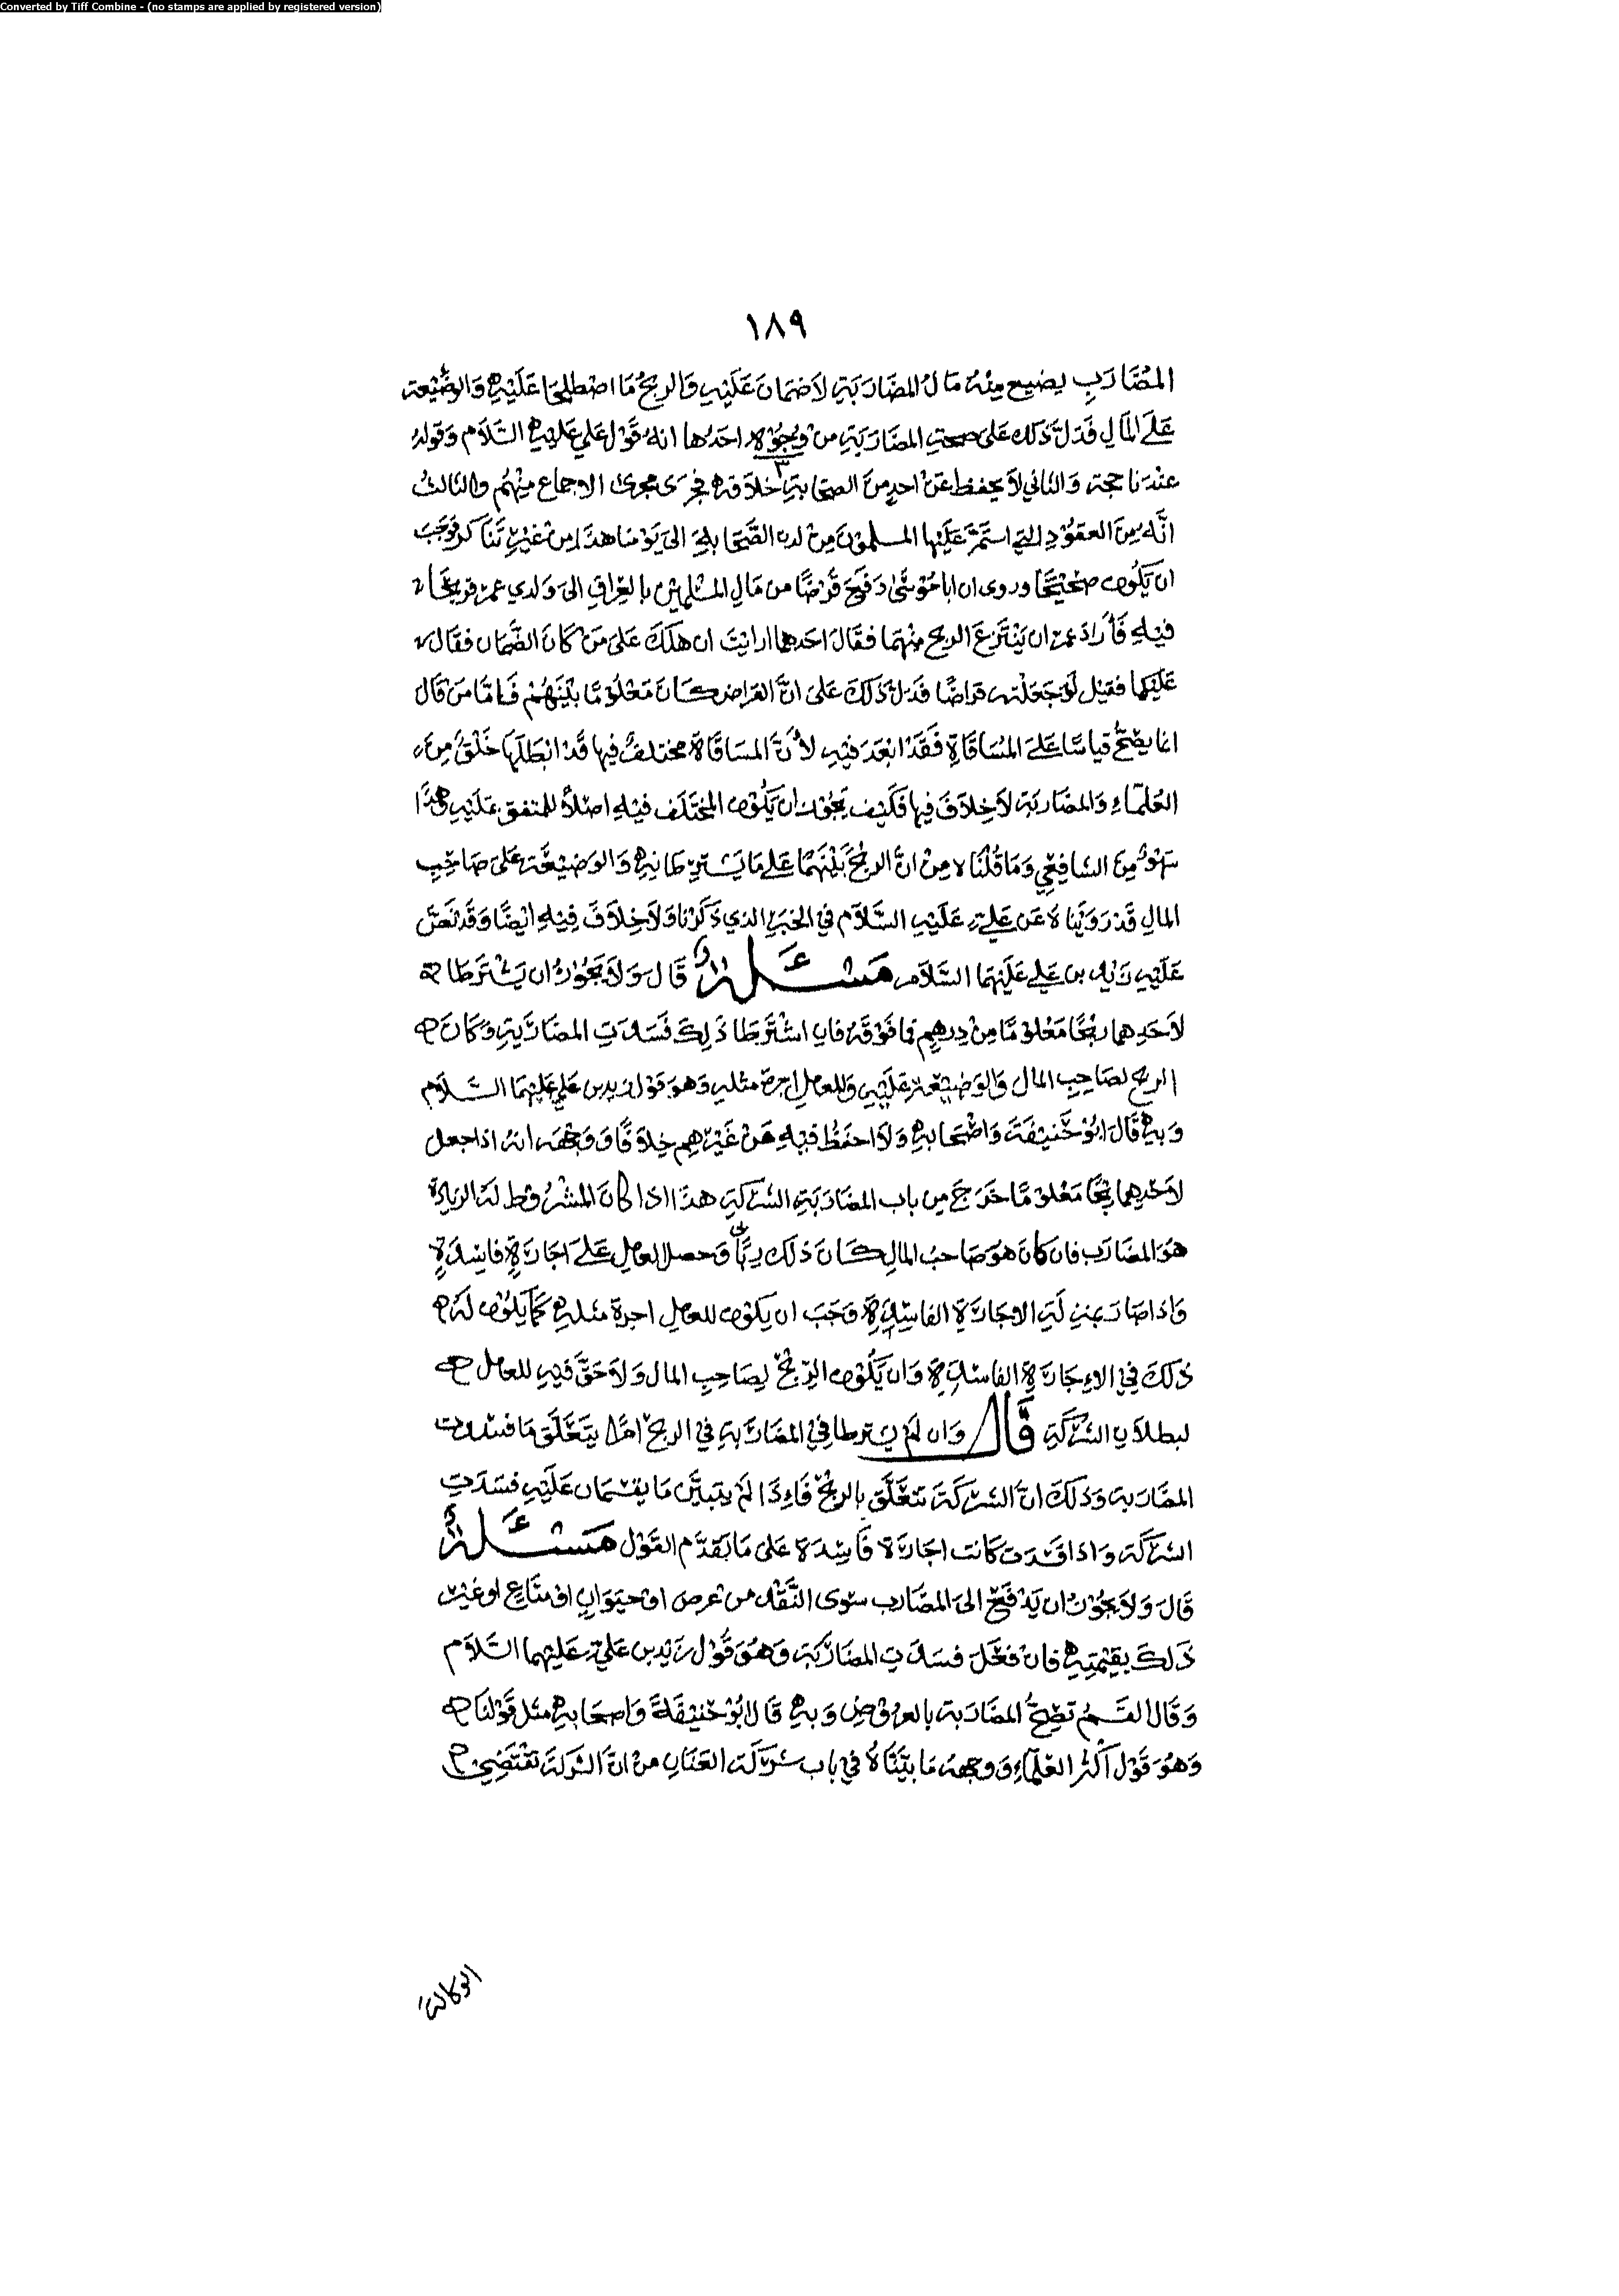 Converted by Tiff Combine - (no stamps are applied by registered version)
١٨٩
المضَارَبِ يضيع مِنْهُ مَالُ المضَارَبَةِ لاَضمَانَ عَلَيْهِ وَالربحُ مَا اصْطلحَا عَلَيْهِ وَالوضِيْعة
عَلَى المَالِ فَدَلَّ ذَلك عَلى صحةِ المضَارَبَةِ مِنْ وُجُوْهٍ احَدُها انهُ قَوْل علي عَلَيْهِ السَّلاَم وَقولهُ
عنْدَنا حجة وَالثاني لاَ يحفظ عَنْ احدٍ مِنَ الصحَابةِ خلاَفه فجرَى مجرى الاجماع مِنْهُم والثالثُ
انَّه مِنَ العقوْدِ التي استمَرَّ عَلَيْها المسلموْنَ مِنْ لدن الصَّحَابةِ الى يَوْمنا هذَا مِن غَيْرِ تَنَاكر فوَجَبَ
ان يَكُون صَحْيْحًا وروى ان ابا مُوْسَى دَفَعَ قَرْضًا من مَالِ المسْلِمِيْن بالعِرَاقِ الى وَلدي عمر فربحَا
فيْهِ فَأرَادَ عمر ان يَنْتزعَ الربح مِنْهمَا فقَالَ احَدهما ارايْتَ ان هلَكَ عَلى مَنْ كَانَ الضَّمان فقَال
عَليْكما فقيْل لَوْ جَعَلته قراضًا فدَلَّ ذَلكَ عَلى انَّ القراض كَانَ مَعْلُومًا بَيْنَهُمْ فَامَّا مَنْ قَال
انما يصِحُّ قياسًا عَلَى المُسَاقَاةِ فَقَدْ ابْعَدَ فيْهِ لأَنَّ المسَاقَاة مختلفٌ فيها قَدْ ابْطَلَها خَلْقٌ مِنَ
العُلمَاءِ وَالمضَاربَة لاَخِلاَفَ فيها فكَيْفَ يَجُوْز ان يَكُوْن المخْتلَف فيْهِ اصْلاً للمتفق عَليْهِ وَهَذَا
سَهْوٌ مِنَ الشافِعِي وَمَا قُلْنَاه مِنْ انَّ الربْحَ بَيْنَهُمَا عَلى مَا يَشترِطَانِهِ وَالوَضيْعَة عَلى صَاحِبِ
المالِ قَدْ رَوَيْنَاهُ عَن عَليٍّ عَلَيْهِ السَّلاَم في الخبَرِ الذي ذَكَرْنا وَلاَخِلاَفَ فِيْهِ ايْضًا وَقَدْ نَصَّ
عَلَيْهِ زَيْد بن عَلي عَلَيْهمَا السَّلاَم مَسْئَلَةٌ قَالَ وَلاَ يَجُوْزُ ان يَشْتَرطَا
لاَحَدِهما ربْحًا مَعْلوْمًا مِنْ دِرْهمٍ فما فَوْقَهُ فان اشْتَرَطَا ذَلِكَ فَسَدَتِ المضَارَبةِ وَكَانَ
الربح لصَاحِبِ المال وَالوَضيْعَة عَلَيْهِ وَللعامل اجرة مثلهِ وَهوَ قَوْل زيد بن علي عَليْهمَا السَّلاَم
وَبهِ قَالَ ابُوْ حَنيْفَةَ وَاصْحَابهِ وَلاَ احفَظُ فيْهِ عَنْ غَيْرهم خِلاَفًا وَوَجْهَه انهُ اذا جعل
لاَحَدِهما ربحًا مَعْلوْمًا خَرَجَ مِن باب المضَارَبَةِ الشركةِ هذَا اذَا كَانَ المشْرُوْط لَهُ الزيَادَة
هوَ المضَارَب فان كَانَ هوَ صَاحبُ المالِ كَانَ ذلك رِبًا وَحصل العامل عَلَى اجَارَةٍ فَاسِدَةٍ
وَاذا صَارَ بمنزلَةِ الاجَارَةِ الفاسِدَةِ وَجَبَ ان يكوْن للعامل اجرة مثلهِ كَمَا يَكُوْن لَهُ
ذلكَ فيْ الاِجَارَةِ الفاسدَةِ وَان يَكُوْن الرِّبْحُ لِصَاحِبِ المال وَلاَ حَقَّ فيهِ للعامل
لبطلاَنِ الشَّرَكَةِ قَالَ وَان لَم يشترطا في المضَارَبةِ في الربح امرًا يتَعَلَّق بهَا فسَدَت
المضَارَبة وَذلكَ انَّ الشركةَ تتعَلَّق بالربْحِ فَاِذَا لَمْ يتبيَّن مَا يقسمَان عَلَيْهِ فسَدَتِ
الشركةَ وَاذا فَسَدَت كَانت اجَارَة فَاسِدَة عَلى مَا تقَدَّم القَوْل مَسْئَلَةٌ
قَالَ وَلاَ يَجُوْزُ ان يَدْفَعَ الى المضَارب سوَى النَّقْد من عرض اوْ حيَوَانٍ اوْ متَاعٍ اوْ غيْرِ
ذَلكَ بقيْمتِهِ فانْ فعَلَ فسَدَتِ المضَارَبَة وَهوَ قَوْل زَيْد بن عَليٍّ عَليْهما السَّلاَم
وَقَال القسم تصِحُّ المضَارَبة بالعرُوْضِ وَبهِ قَالَ ابُوْ حَنيْفَةَ وَاصحَابهِ مثل قَوْلنَا
وَهُوَ قَوْل اكثر العلمَاءِ وَوجهه مَا بيَّنَّاهُ في باب شركة العنَانِ من انَّ الشركة تقْتَضِي
الوكالة